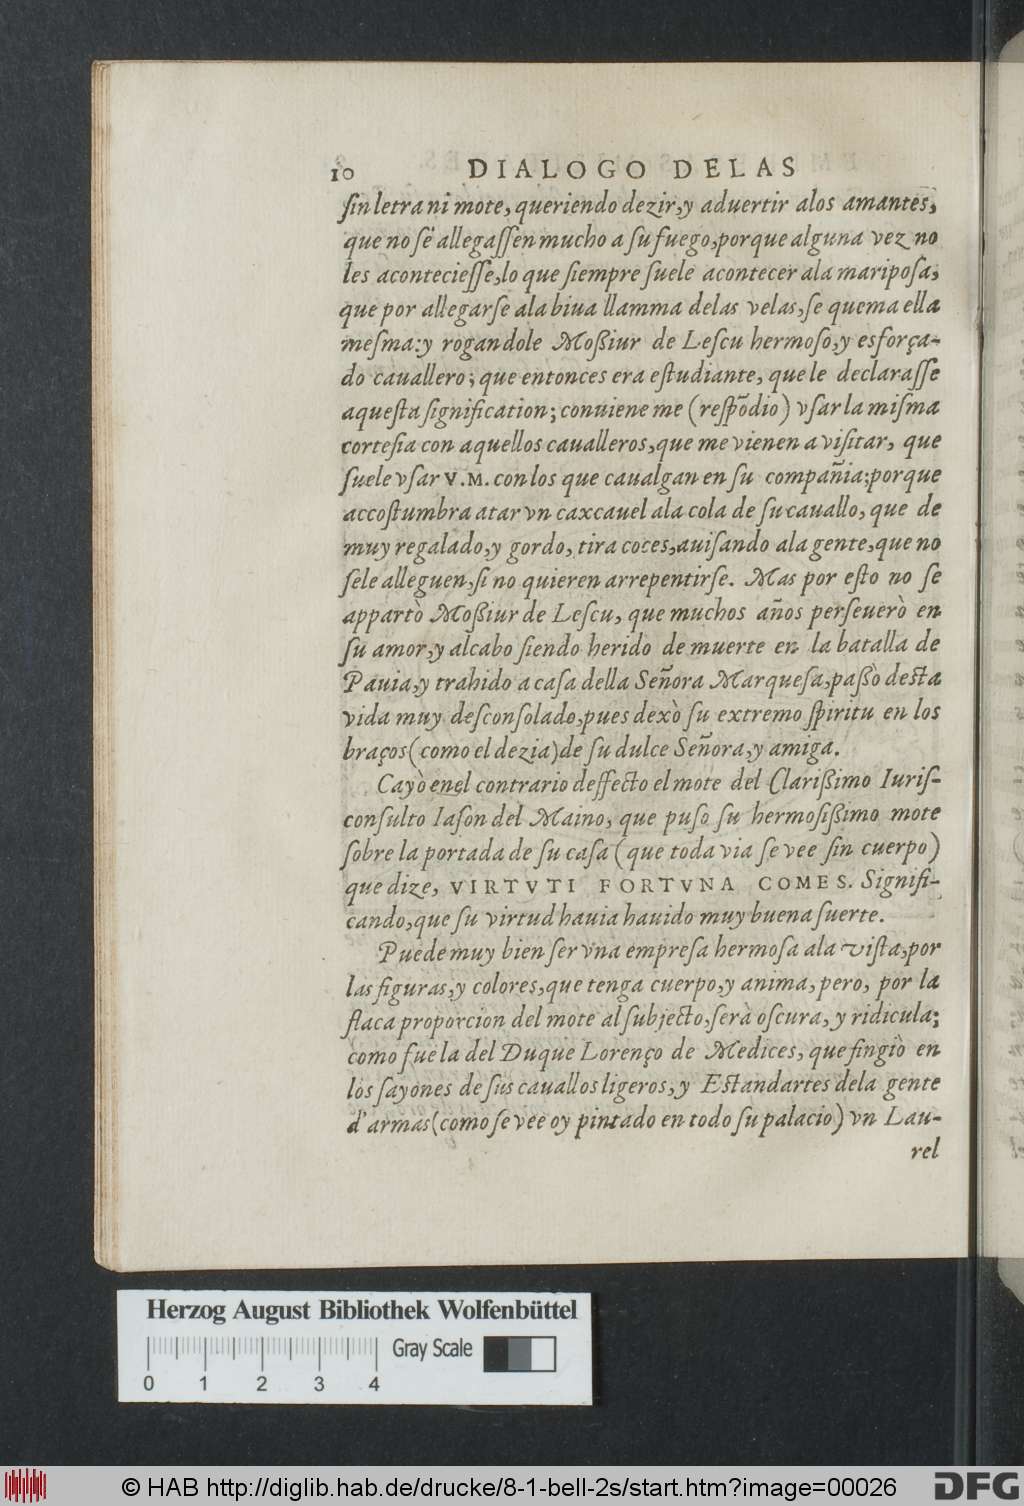 10 DIALOGO DELAS
ſin letra ni mote, queriendo dezir, y aduertir alos amantes,
que no ſe allegaſſen mucho a ſu fuego, porque alguna vez no
les acontecieſſe, lo que ſiempre ſuele acontecer ala maripoſa,
que por allegarſe ala biua llamma delas velas, ſe quema ella
meſma: y rogandole Moßiur de Leſcu hermoſo, y esforça-
do cauallero; que entonces era eſtudiante, que le declaraſſe
aqueſta ſignification; conuiene me (reſpõdio) vſar la miſma
corteſia con aquellos caualleros, que me vienen a viſitar, que
ſuele vſar V.M. con los que caualgan en ſu compañia: porque
accoſtumbra atar vn caxcauel ala cola de ſu cauallo, que de
muy regalado, y gordo, tira coces, auiſando ala gente, que no
ſele alleguen, ſi no quieren arrepentirſe. Mas por eſto no ſe
appartò Moßiur de Leſcu, que muchos años perſeuerò en
ſu amor, y alcabo ſiendo herido de muerte en la batalla de
Pauia, y trahido a caſa della Señora Marqueſa, paßò deſta
vida muy deſconſolado, pues dexò ſu extremo ſpiritu en los
braços (como el dezia) de ſu dulce Señora, y amiga.
Cayò enel contrario deffecto el mote del Clarißimo Iuriſ-
conſulto Iaſon del Maino, que puſo ſu hermoſißimo mote
ſobre la portada de ſu caſa (que toda via ſe vee ſin cuerpo)
que dize, VIRTVTI FORTVNA COMES. Signifi-
cando, que ſu virtud hauia hauido muy buena ſuerte.
Puede muy bien ſer vna empreſa hermoſa ala viſta, por
las figuras, y colores, que tenga cuerpo, y anima, pero, por la
flaca proporcion del mote al ſubjecto, ſerà oſcura, y ridicula;
como fue la del Duque Lorenço de Medices, que fingiò en
los ſayones de ſus cauallos ligeros, y Eſtandartes dela gente
d'armas (como ſe vee oy pintado en todo ſu palacio) vn Lau-
rel
Herzog August Bibliothek Wolfenbüttel
Gray Scale
0 1 2 3 4
© HAB http://diglib.hab.de/drucke/8-1-bell-2s/start.htm?image=00026
DFG